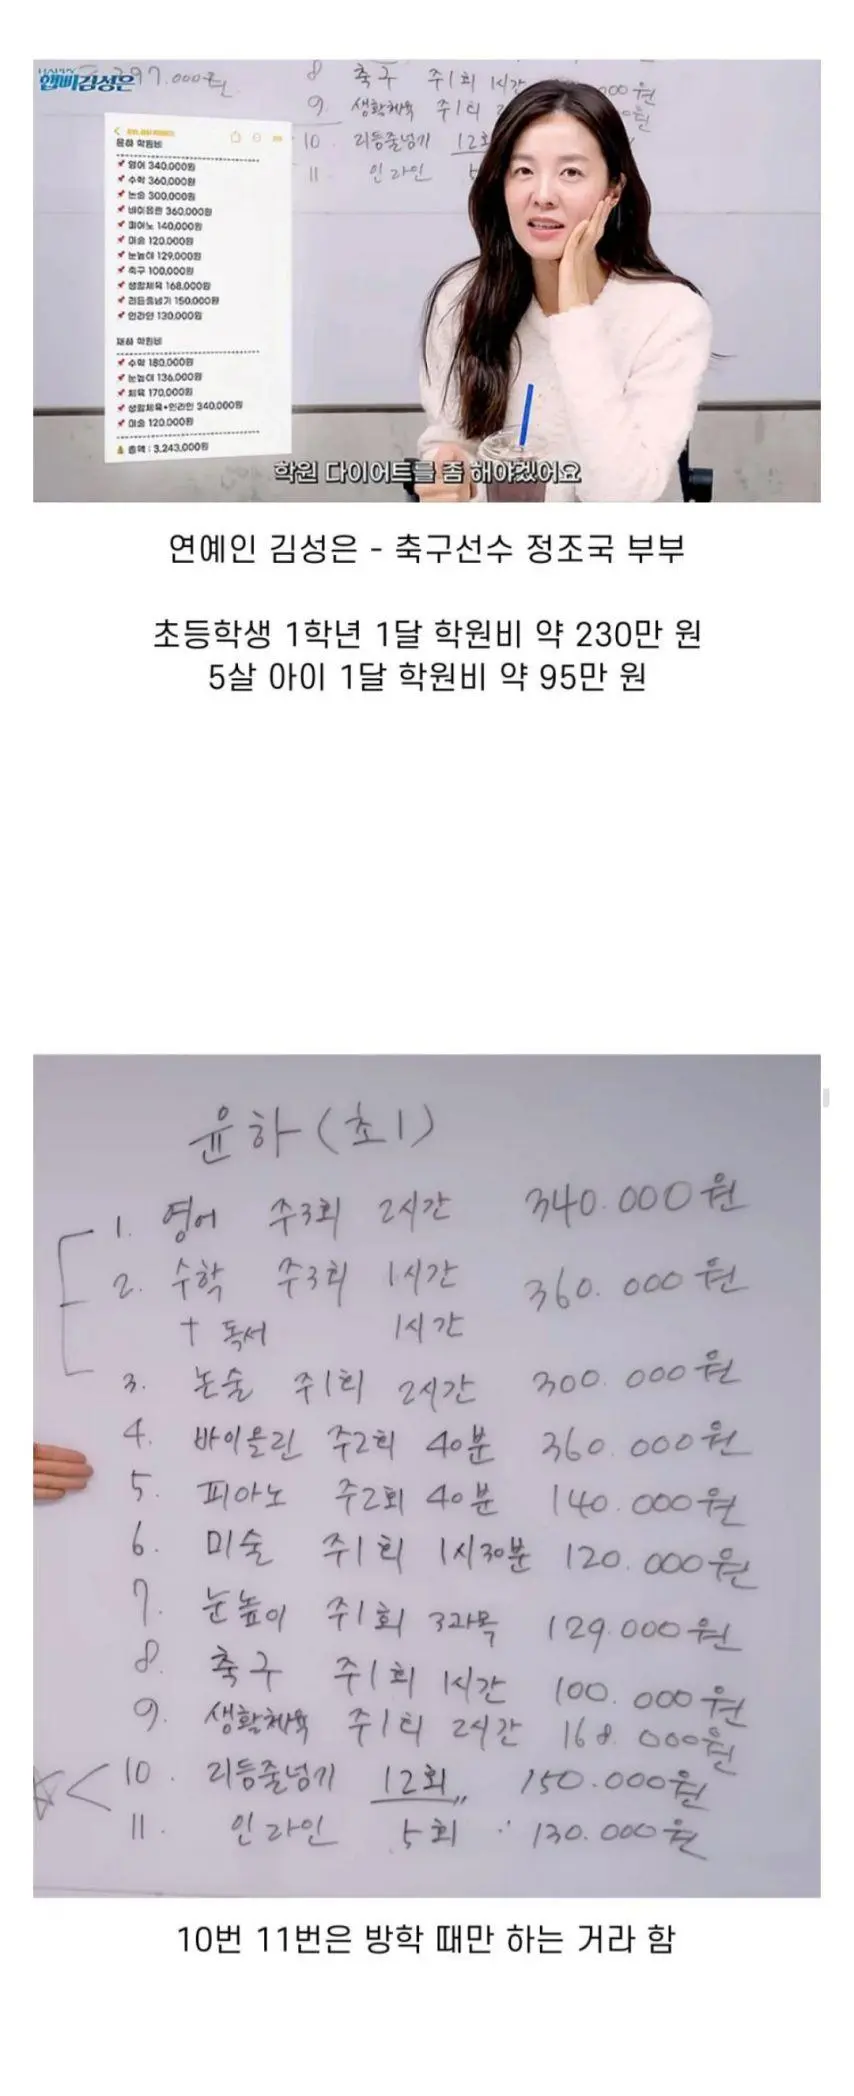 HAPPY
햅삐김성은
297.000원
8 축구 주1회 1시간 000원
9. 생활체육 주1회 2
10. 리듬줄넘기 12회
11. 인라인 5
윤하 학원비
📌 영어 340,000원
📌 수학 360,000원
📌 논술 300,000원
📌 바이올린 360,000원
📌 피아노 140,000원
📌 미술 120,000원
📌 눈높이 129,000원
📌 축구 100,000원
📌 생활체육 168,000원
📌 리듬줄넘기 150,000원
📌 인라인 130,000원
재하 학원비
📌 수학 180,000원
📌 눈높이 136,000원
📌 체육 170,000원
📌 생활체육+인라인 340,000원
📌 미술 120,000원
💰 총액 : 3,243,000원
학원 다이어트를 좀 해야겠어요
연예인 김성은 - 축구선수 정조국 부부
초등학생 1학년 1달 학원비 약 230만 원
5살 아이 1달 학원비 약 95만 원
윤하(초1)
1. 영어 주3회 2시간 340.000원
2. 수학 주3회 1시간 360.000원
+ 독서 1시간
3. 논술 주1회 2시간 300.000원
4. 바이올린 주2회 40분 360.000원
5. 피아노 주2회 40분 140.000원
6. 미술 주1회 1시30분 120.000원
7. 눈높이 주1회 3과목 129.000원
8. 축구 주1회 1시간 100.000원
9. 생활체육 주1회 2시간 168.000원
10. 리듬줄넘기 12회 150.000원
11. 인라인 5회 130.000원
10번 11번은 방학 때만 하는 거라 함